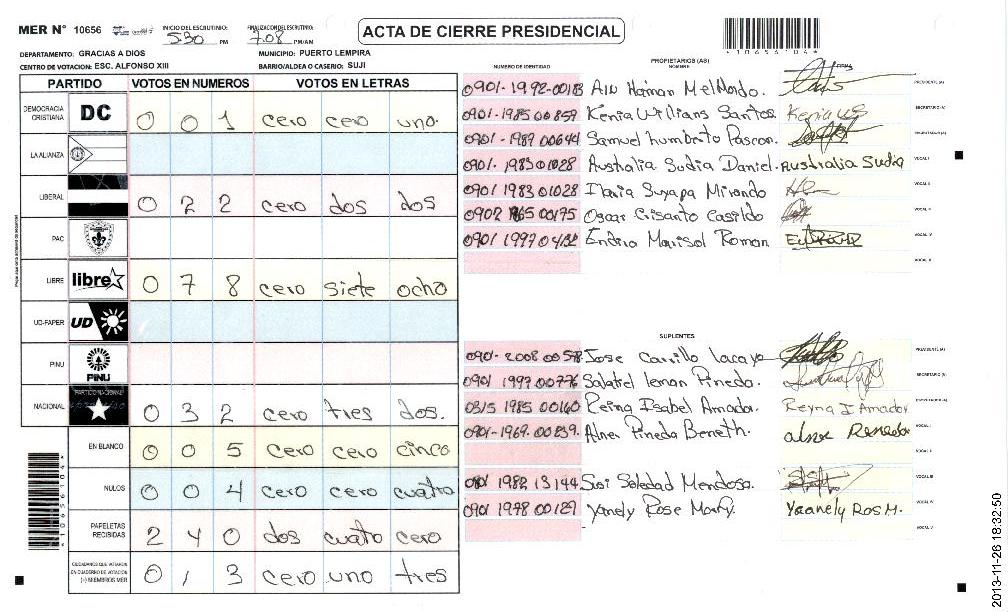 MER Nº 10656
INICIO DEL ESCRUTINIO: 5:30 PM
FINALIZACION DEL ESCRUTINIO: 7.08 PM/AM
ACTA DE CIERRE PRESIDENCIAL
*10656104*
DEPARTAMENTO: GRACIAS A DIOS
MUNICIPIO: PUERTO LEMPIRA
CENTRO DE VOTACION: ESC. ALFONSO XIII
BARRIO/ALDEA O CASERIO: SUJI
PARTIDO VOTOS EN NUMEROS VOTOS EN LETRAS
DEMOCRACIA CRISTIANA DC 0 0 1 cero cero uno.
LA ALIANZA
LIBERAL 0 2 2 cero dos dos
PAC
LIBRE libre 0 7 8 cero siete ocho
UD-FAPER UD
PINU PINU
NACIONAL 0 3 2 cero tres dos.
EN BLANCO 0 0 5 cero cero cinco
NULOS 0 0 4 cero cero cuatro
PAPELETAS RECIBIDAS 2 4 0 dos cuatro cero
CIUDADANOS QUE VOTARON EN CUADERNO DE VOTACION (+) MIEMBROS MER 0 1 3 cero uno tres
*10656104*
NUMERO DE IDENTIDAD
PROPIETARIOS (AS)
NOMBRE
FIRMA
PRESIDENTE (A)
0901-1985 00859 Kenia Willians Santos. Kenia WS
SECRETARIO (A)
0901-1989 00644 Samuel humberto Pascon.
0901-1983 01028 Australia Sudia Daniel. Australia Sudia
VOCAL I
0901 1983 01028 Suyapa Mirando
VOCAL II
00175 Oscar Crisanto Casildo
VOCAL III
0901 1997 Marisol Roman
VOCAL IV
VOCAL V
SUPLENTES
Jose Carrillo Lacayo
PRESIDENTE (A)
0901 1997 00776 Pineda.
SECRETARIO (A)
0315 1985 00160 Reina Isabel Amador. Reyna I Amador
0901-1969.00239. Pineda
VOCAL I
VOCAL II
1982 13144 Susi Soledad Mendosa.
VOCAL III
0901 1978 00129 Yanely Rose Yaanely Ros M.
VOCAL IV
VOCAL V
2013-11-26 18:32:50